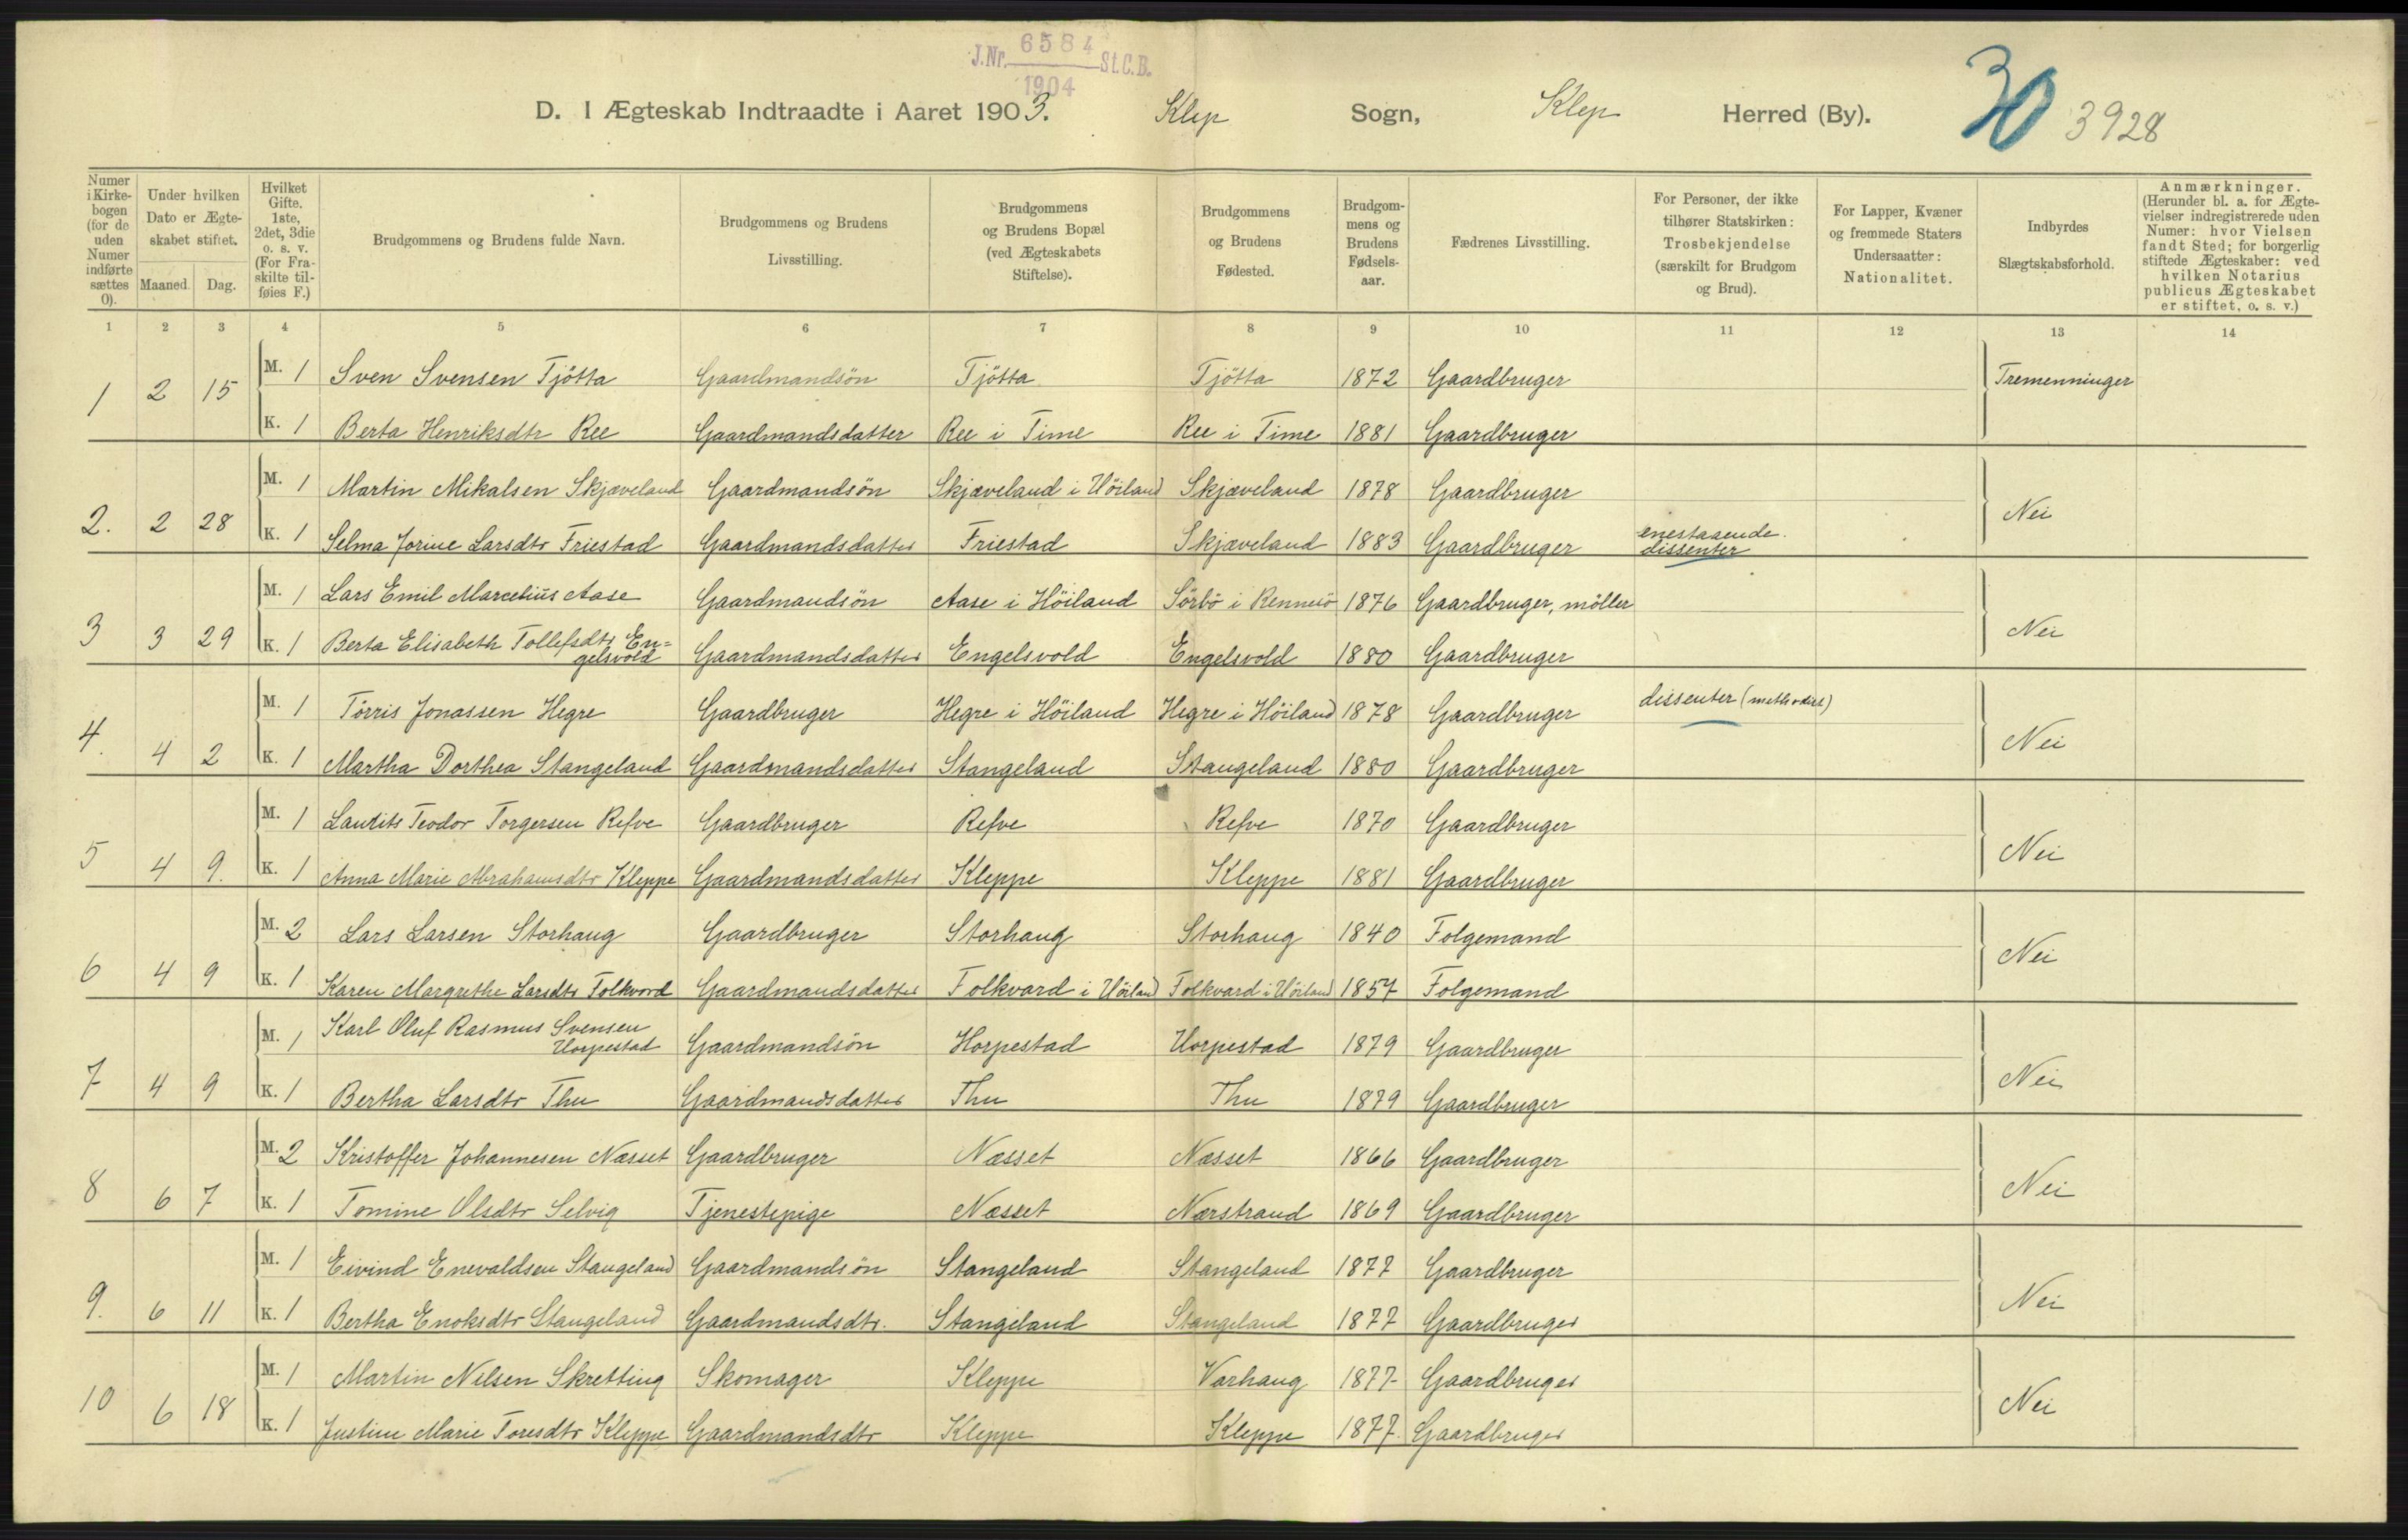 J.Nr. 6584 St.C.B.
1904
D. I Ægteskab Indtraadte i Aaret 1903. Klep Sogn, Klep Herred (By). 30 3928
Numer i Kirkebogen (for de uden Numer indførte sættes 0). Under hvilken Dato er Ægteskabet stiftet. Maaned. Dag. Hvilket Gifte. 1ste, 2det, 3die o. s. v. (For Fraskilte tilføies F.) Brudgommens og Brudens fulde Navn. Brudgommens og Brudens Livsstilling. Brudgommens og Brudens Bopæl (ved Ægteskabets Stiftelse). Brudgommens og Brudens Fødested. Brudgommens og Brudens Fødselsaar. Fædrenes Livsstilling. For Personer, der ikke tilhører Statskirken: Trosbekjendelse (særskilt for Brudgom og Brud). For Lapper, Kvæner og fremmede Staters Undersaatter: Nationalitet. Indbyrdes Slægtskabsforhold. Anmærkninger. (Herunder bl. a. for Ægtevielser indregistrerede uden Numer: hvor Vielsen fandt Sted; for borgerlig stiftede Ægteskaber: ved hvilken Notarius publicus Ægteskabet er stiftet, o. s. v.)
1 2 3 4 5 6 7 8 9 10 11 12 13 14
1 2 15 M. 1 Sven Svensen Tjötta Gaardmandsön Tjötta Tjötta 1872 Gaardbruger Tremenninger
K. 1 Berta Henriksdtr Ree Gaardmandsdatter Ree i Time Ree i Time 1881 Gaardbruger
2. 2 28 M. 1 Martin Mikalsen Skjæveland Gaardmandsön Skjæveland i Höiland Skjæveland 1878 Gaardbruger Nei
K. 1 Selma Jorine Larsdtr Friestad Gaardmandsdatter Friestad Skjæveland 1883 Gaardbruger enestaaende dissenter
3 3 29 M. 1 Lars Emil Marcelius Aase Gaardmandsön Aase i Höiland Sörbö i Rennesö 1876 Gaardbruger, möller Nei
K. 1 Berta Elisabeth Tollefsdtr Engelsvold Gaardmandsdatter Engelsvold Engelsvold 1880 Gaardbruger
4. 4 2 M. 1 Törris Jonassen Hegre Gaardbruger Hegre i Höiland Hegre i Höiland 1878 Gaardbruger dissenter (methodist) Nei
K. 1 Martha Dorthea Stangeland Gaardmandsdatter Stangeland Stangeland 1880 Gaardbruger
5 4 9. M. 1 Lauritz Teodor Torgersen Refve Gaardbruger Refve Refve 1870 Gaardbruger Nei
K. 1 Anna Marie Abrahamsdtr Kleppe Gaardmandsdatter Kleppe Kleppe 1881 Gaardbruger
6 4 9 M. 2 Lars Larsen Storhaug Gaardbruger Storhaug Storhaug 1840 Folgemand Nei
K. 1 Karen Margrethe Larsdtr Folkvord Gaardmandsdatter Folkvard i Höiland Folkvard i Höiland 1857 Folgemand
7 4 9 M. 1 Karl Oluf Rasmus Svensen Horpestad Gaardmandsön Horpestad Horpestad 1879 Gaardbruger Nei
K. 1 Bertha Larsdtr Thu Gaardmandsdatter Thu Thu 1879 Gaardbruger
8 6 7 M. 2 Kristoffer Johannesen Næsset Gaardbruger Næsset Næsset 1866 Gaardbruger Nei
K. 1 Tomine Olsdtr Selvig Tjenestepige Næsset Nærstrand 1869 Gaardbruger
9. 6 11 M. 1 Eivind Enevaldsen Stangeland Gaardmandsön Stangeland Stangeland 1877 Gaardbruger Nei
K. 1 Bertha Enoksdtr Stangeland Gaardmandsdtr. Stangeland Stangeland 1877 Gaardbruger
10 6 18 M. 1 Martin Nilsen Skretting Skomager Kleppe Varhaug 1877 Gaardbruger Nei
K. 1 Justine Marie Toresdtr Kleppe Gaardmandsdtr Kleppe Kleppe 1877 Gaardbruger